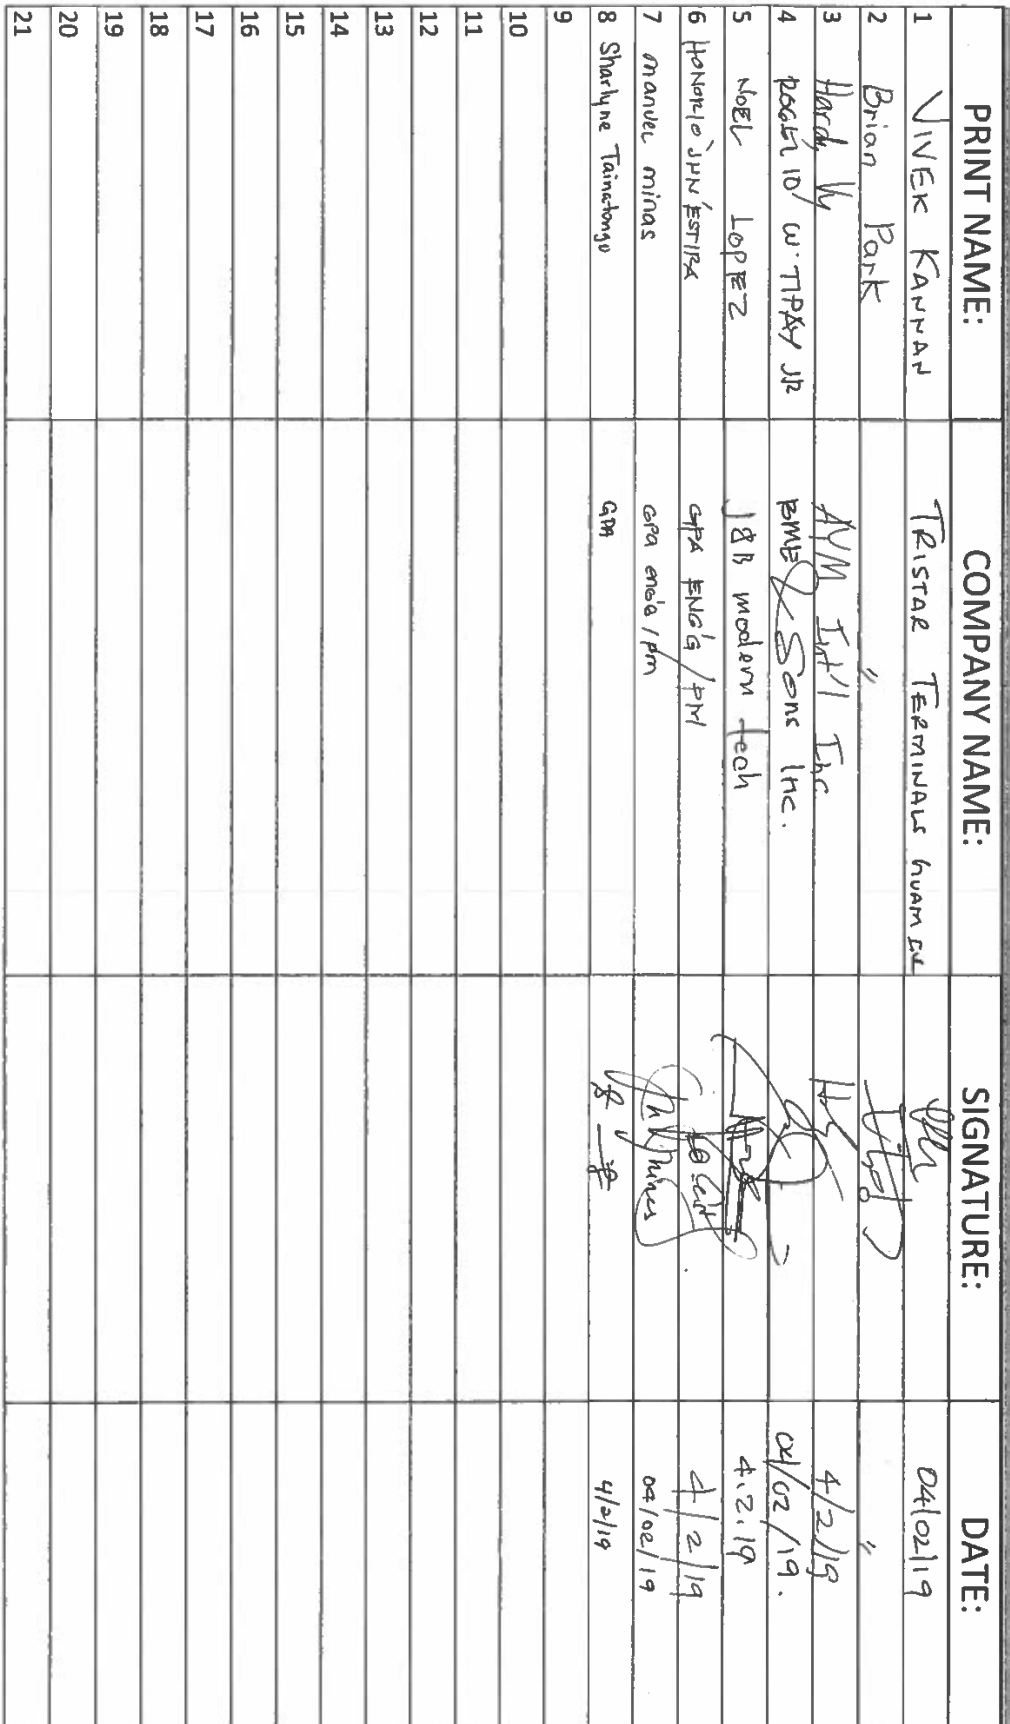 PRINT NAME: COMPANY NAME: SIGNATURE: DATE:
1 VIVEK KANNAN TRISTAR TERMINALS GUAM 04/02/19
2 Brian Park " "
3 Hardy AYM Int'l Inc 4/2/19
4 W. TIPAY JR BME & Sons Inc. 04/02/19.
5 NOEL LOPEZ J&B modern tech 4.2.19
6 HONORIO GPA ENG'G / PM 4/2/19
7 manuel minas GPA / pm 04/02/19
8 Sharlyne Tainatongo GPA 4/2/19
9
10
11
12
13
14
15
16
17
18
19
20
21